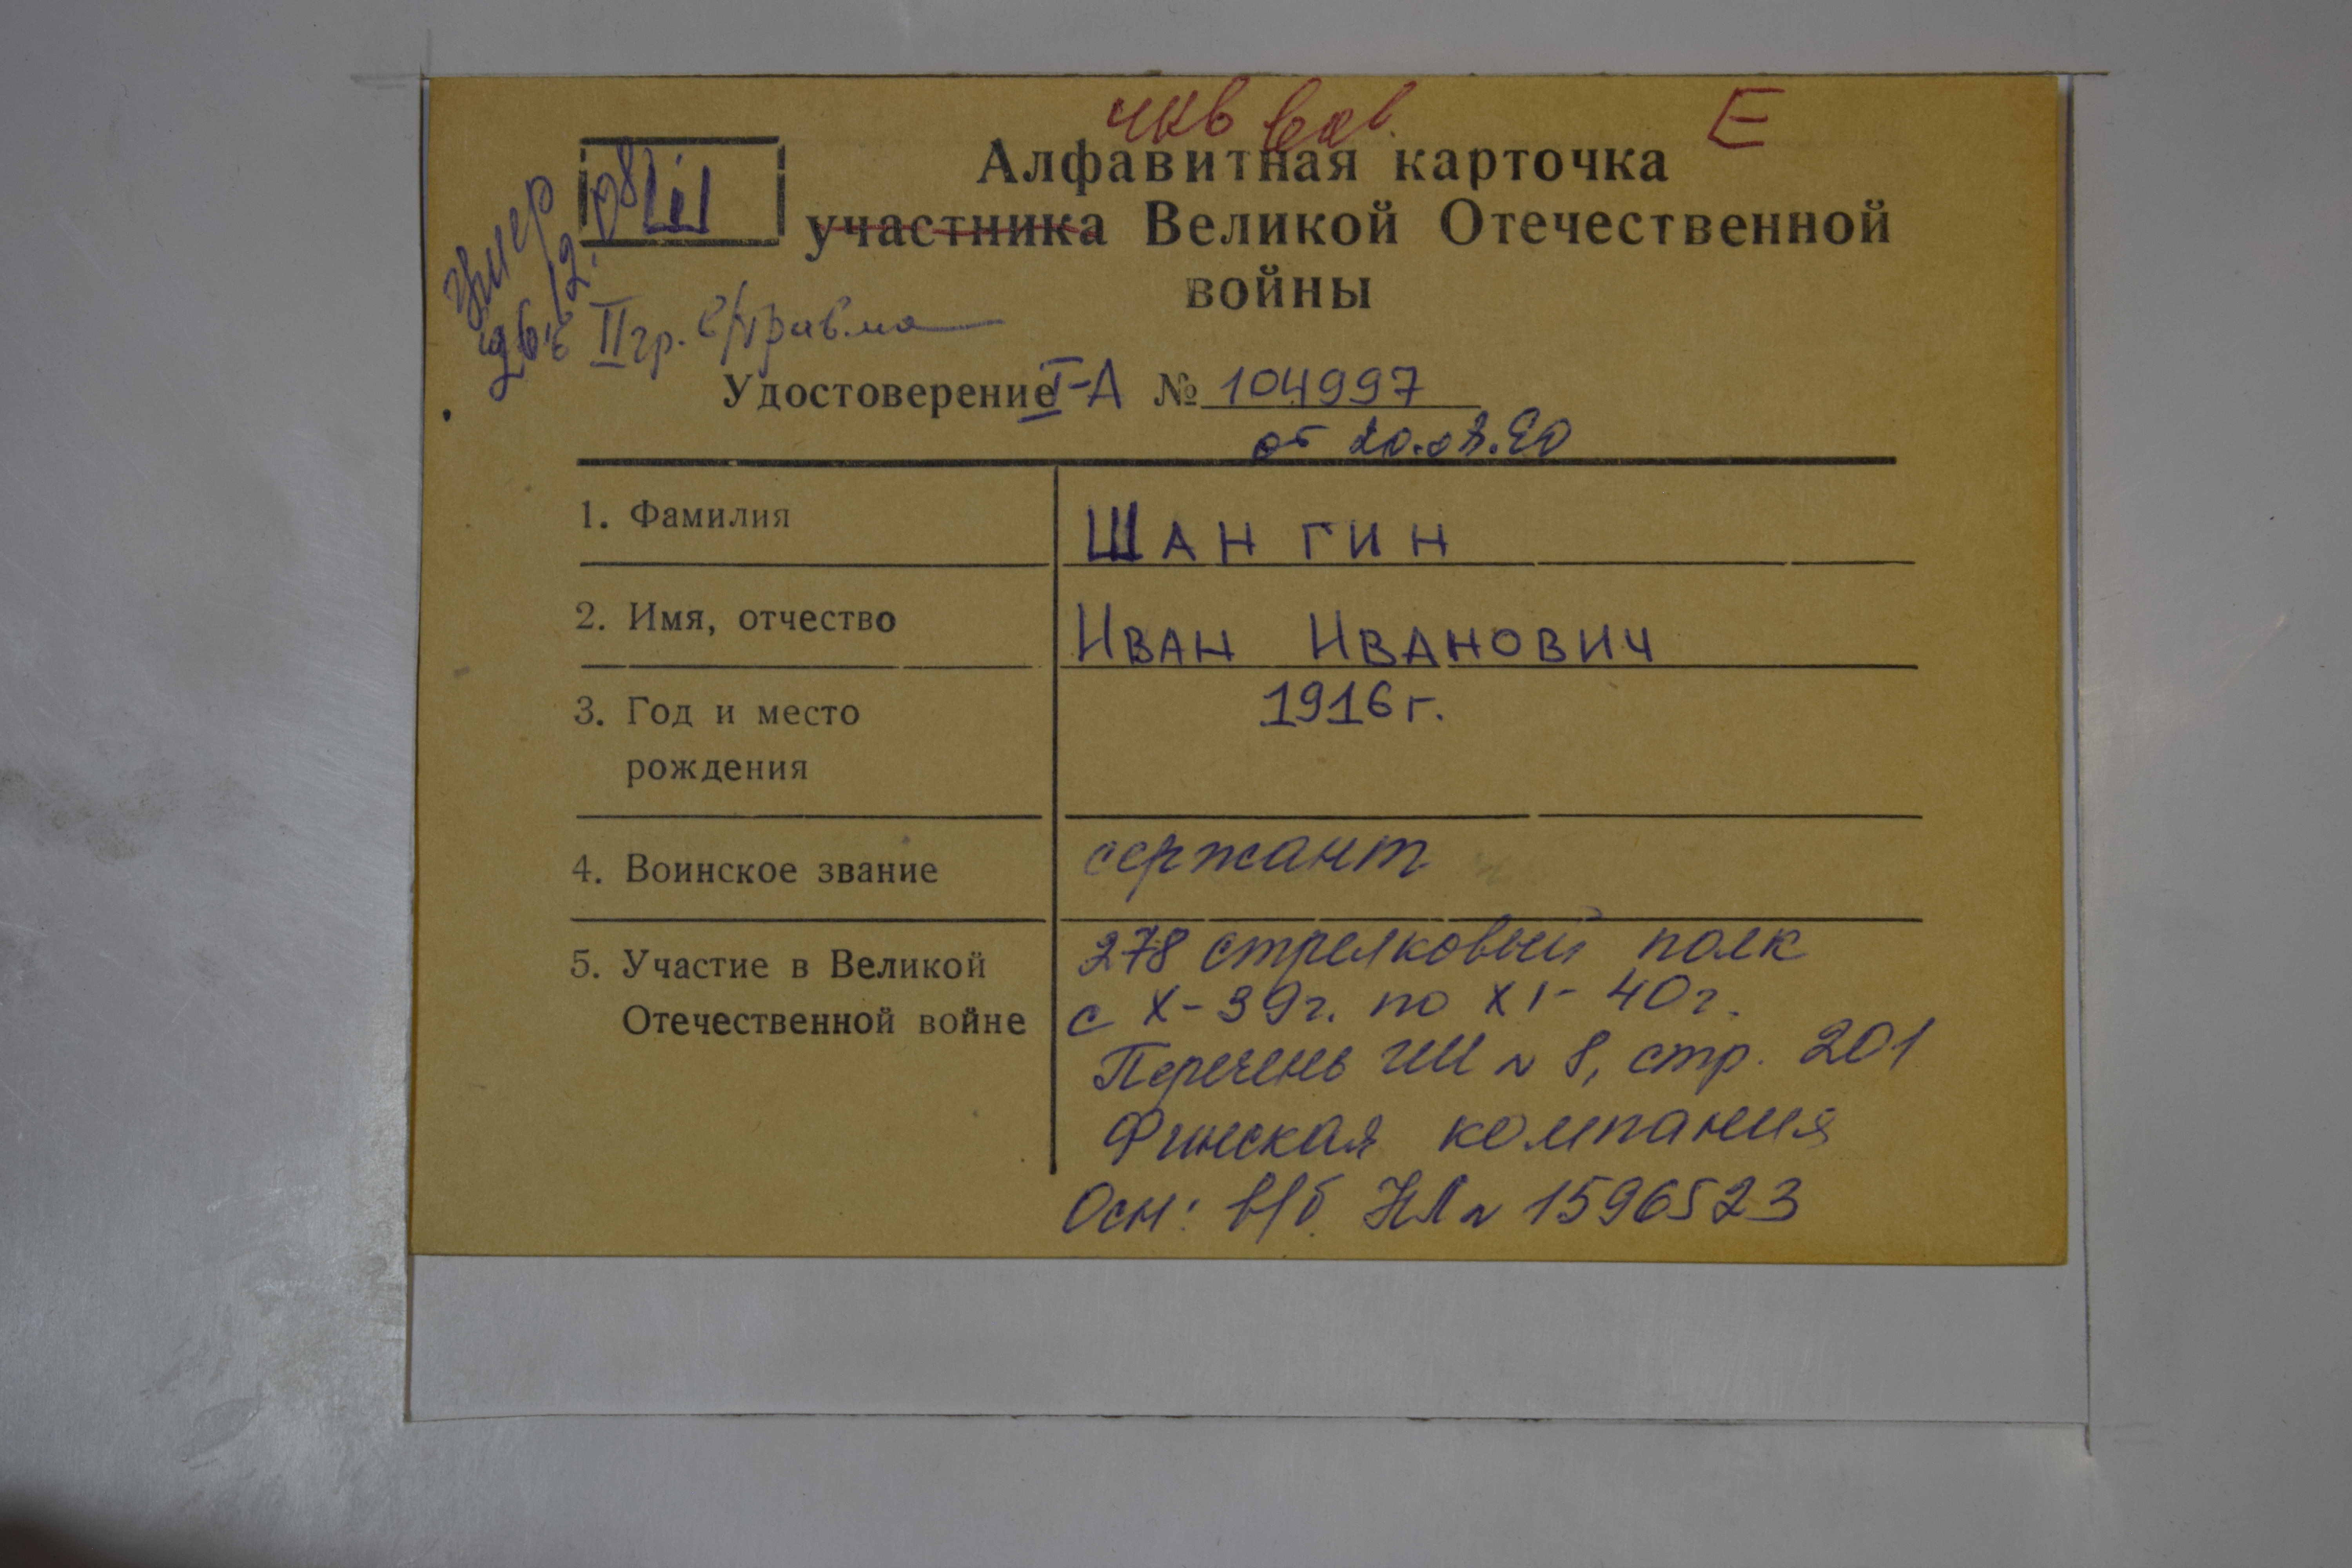 Е
Ш
Алфавитная карточка
участника Великой Отечественной
войны
умер
26.12.08
II гр. в/травма
Удостоверение I-А № 104997
от 20.08.80
1. Фамилия ШАНГИН
2. Имя, отчество ИВАН ИВАНОВИЧ
3. Год и место 1916 г.
рождения
4. Воинское звание сержант
5. Участие в Великой 278 стрелковый полк
Отечественной войне с X-39г. по XI-40г.
Перечень №8, стр. 201
Финская компания
Осн: в/б НЛ № 1596523